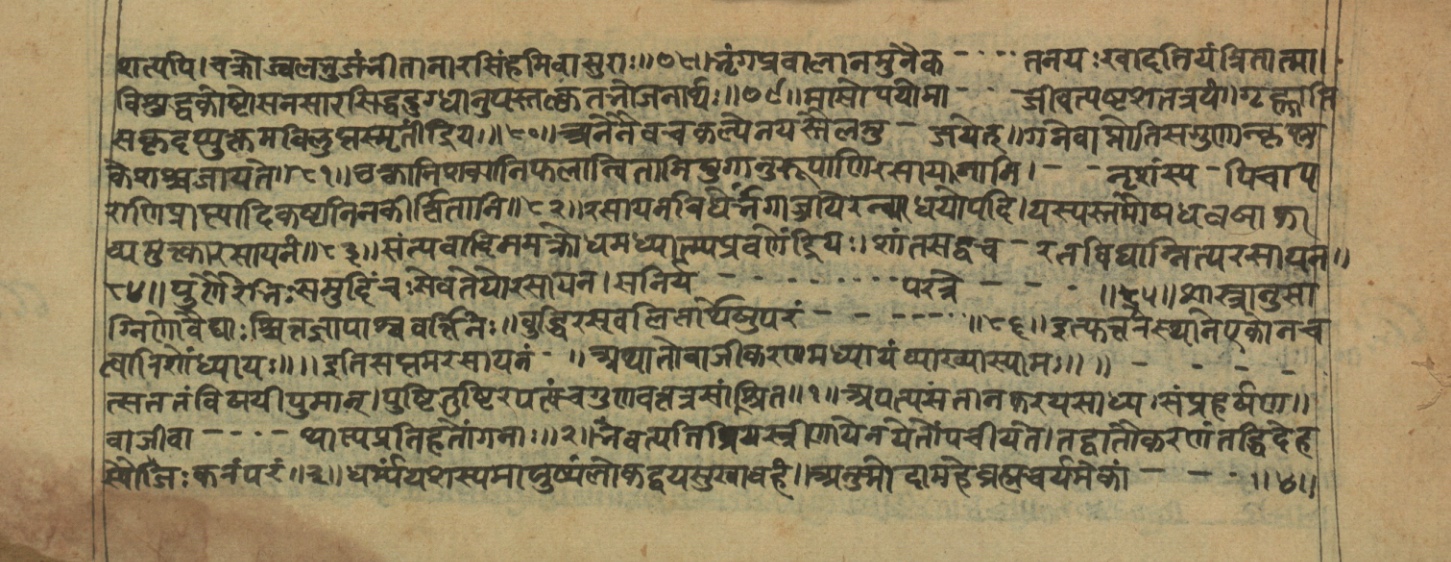 शत्यपि। वक्रोज्वलत्रुजंनीतानारसिंहमिवासुराः॥७८॥ भृंगप्रवालानमुनैक - - - - तनयः खादतियंत्रितात्मा।
विशुद्धकोष्टोसनसारसिद्धदुग्धानुपस्तत्कृतभोजनार्थः॥७९॥ मासोपयोमा - - जीवत्यष्टशतत्रयं॥ गृह्णाति
सकृदप्युक्तमविलुप्तस्मृतींद्रियः॥८०॥ अनेनैवचकल्पेनयस्तैलमु - जयेत्॥ तानेवाप्नोतिसगुणान्कृष्ण
केशश्चजायते॥८१॥ उक्तानिशक्यानिफलान्वितानियुगानुरूपाणिरसायनानि। - - नृशंस्य - पिचाप
राणिप्राप्त्यादिकष्टानिनकीर्त्तितानि॥८२॥ रसायनविधेर्भ्रंगाज्जायेरन्व्याधयोपदि। यस्यस्तमौषधवणाका
व्यमुत्कारसायनं॥८३॥ संत्यवादिनमक्रोधमध्यात्मप्रवणेंद्रियः। शांतसद्वच - रतविद्यान्नित्यरसायन॥
८४॥ गुणैरेभिः समुदिंचः सेवतेयोरसायन। सनिर्य - - - - - - - - परत्रे - - - - ॥८५॥ शास्त्रानुसा
रिणीवैद्याः चित्तज्ञापाश्चवर्त्तिनः॥ बुद्धिरसवलितार्थेषुपरं - - - - - - ॥८६॥ इत्फत्तनेस्थानेएकोनच
त्वारिशोध्यायः॥ ॥ इतिसप्तमरसायनं - ॥ अथातोवाजीकरणमध्यायंव्याख्यास्यामः॥ ॥ - - - -
त्सततंविषयीपुमान्। पुष्टितुष्टिरपत्यंचगुणवत्तत्रसंश्रित॥१॥ अपत्यसंतानकरयसाध्य। संप्रहर्षण॥
वाजीवा - - - - थात्यप्रतिहतांगनाः॥२॥ भवत्यतिप्रियस्त्रीणायेनयेतोपचीयते। तद्वाजीकरणंतद्धिदेह
स्योर्जः करंपरं॥३॥ धर्म्यंयशस्यमायुष्यंलोकद्वयसुखावहं। अनुमोदामहेब्रह्मचर्यमेकां - - - ॥४॥